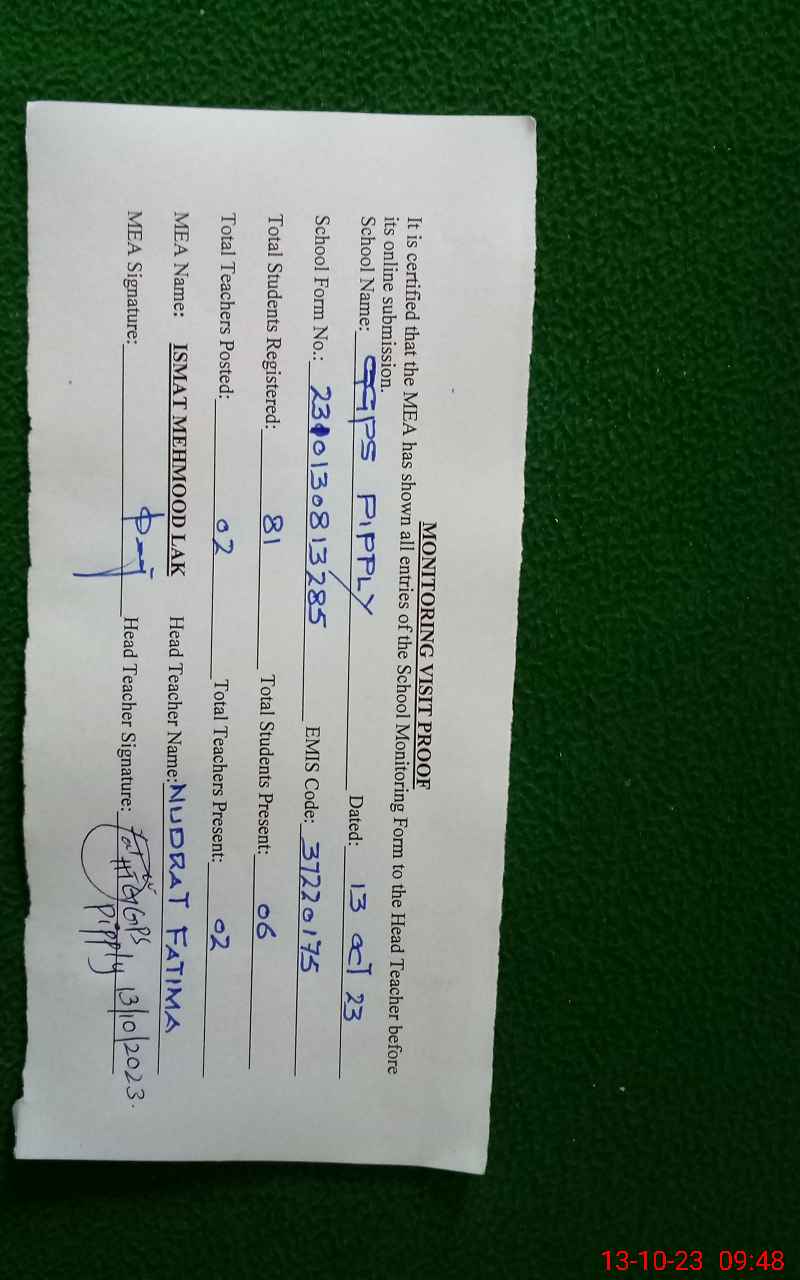 MONITORING VISIT PROOF
It is certified that the MEA has shown all entries of the School Monitoring Form to the Head Teacher before
its online submission.
School Name: GGPS PIPPLY Dated: 13 Oct 23
School Form No.: 230130813285 EMIS Code: 37220175
Total Students Registered: 81 Total Students Present: 06
Total Teachers Posted: 02 Total Teachers Present: 02
MEA Name: ISMAT MEHMOOD LAK Head Teacher Name: NUDRAT FATIMA
MEA Signature: Head Teacher Signature:
GGPS
Pipply 13/10/2023.
13-10-23 09:48